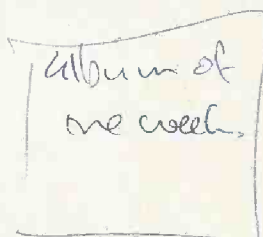 album of
the week.